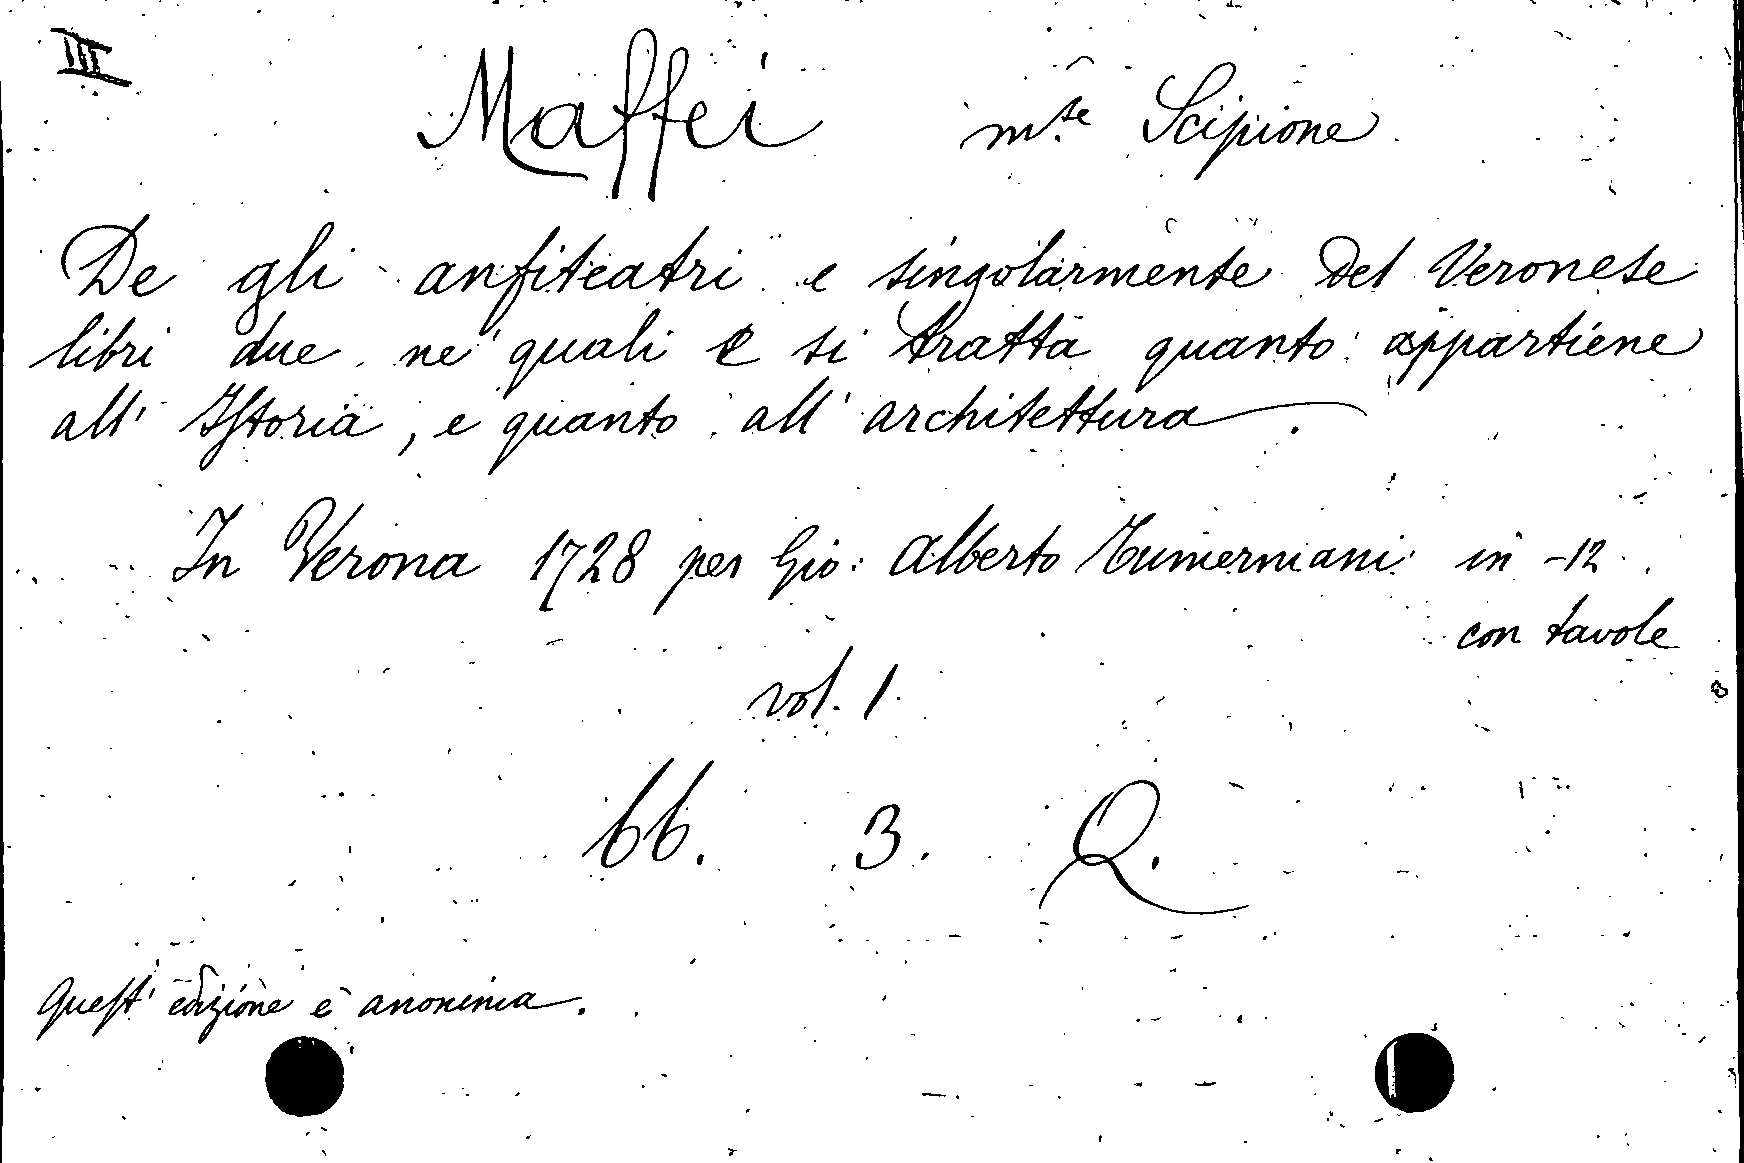 III
Maffei m.te Scipione
De gli anfiteatri e singolarmente del Veronese
libri due ne' quali e si tratta quanto appartiene
all' Istoria, e quanto all' architettura.
In Verona 1728 per Gio: Alberto Tumermani in-12.
con tavole
vol. 1.
66. 3. Q.
Quest' edizione è anonima.